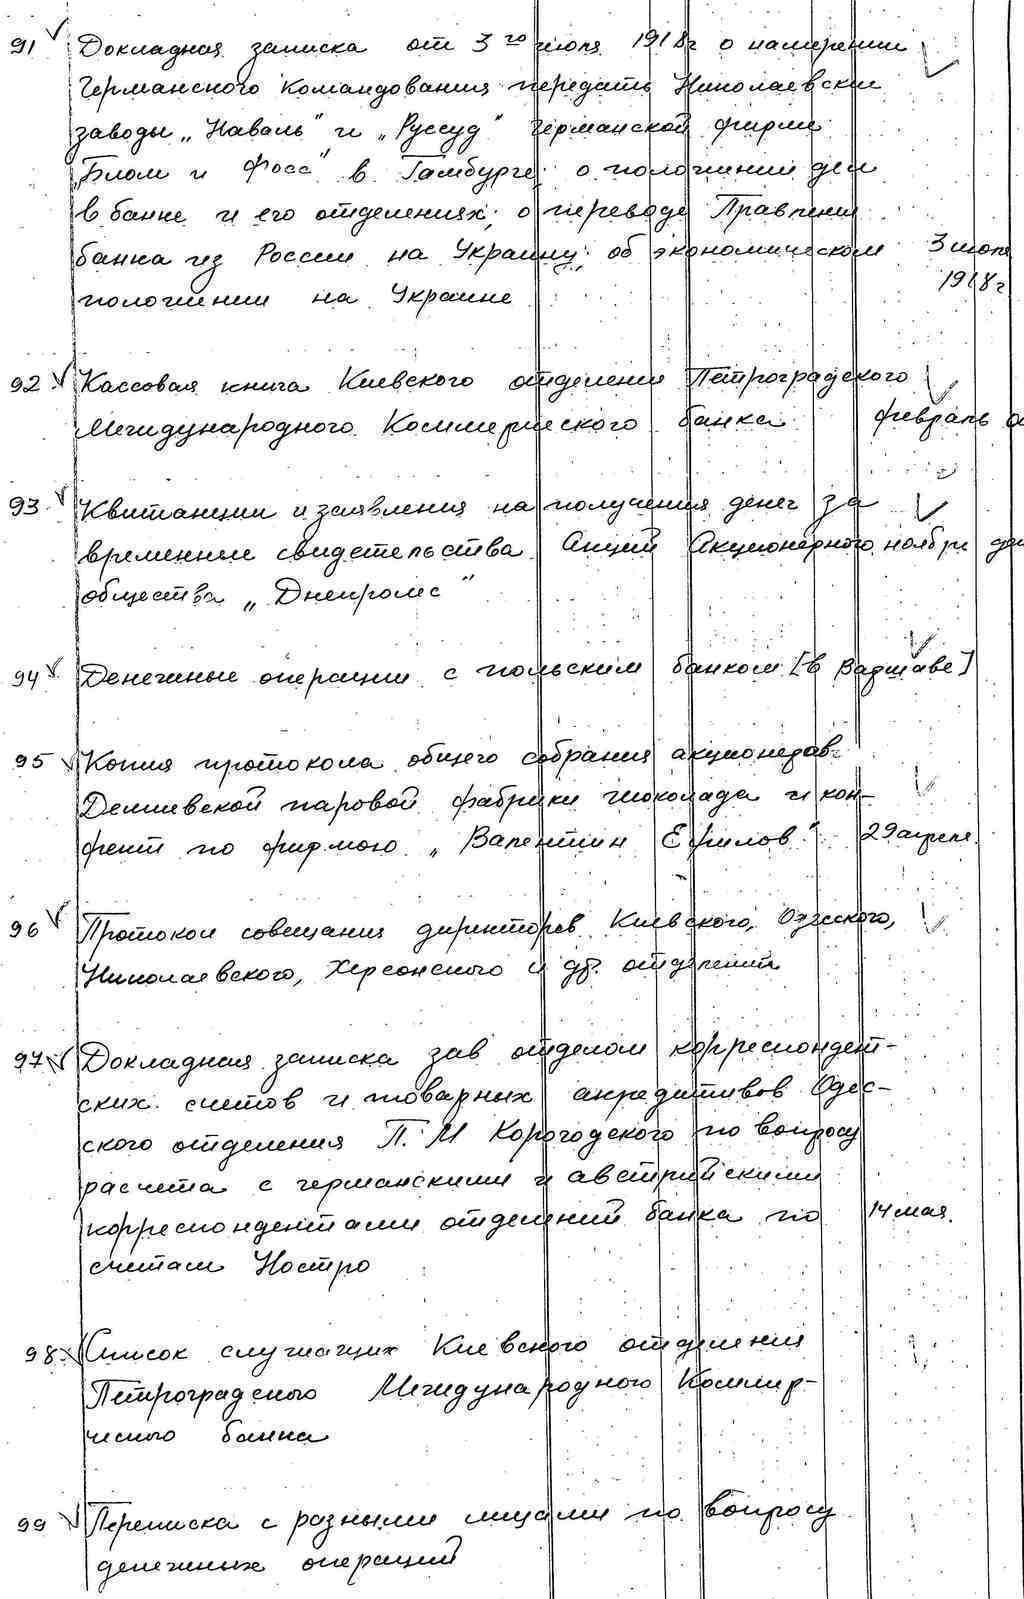 91 Докладная записка от 3го июля 1918г о намерении
Германского Командования передать Николаевские
заводы „Наваль" и „Руссуд" германской фирме
„Блом и Фосс" в Гамбурге; о положении дел
в банке и его отделениях; о переводе Правления
банка из России на Украину; об экономическом 3 июля
положении на Украине 1918г
92 Кассовая книга Киевского отделения Петроградского
Международного Коммерческого банка февраль
93 Квитанции и заявления на получения денег за
временные свидетельства Акций Акционерного ноябрь
общества „Днепролес"
94 Денежные операции с польским банком [в Варшаве]
95 Копия протокола общего собрания акционеров
Демиевской паровой фабрики шоколада и кон-
фект по фирмою „Валентин Ефимов" 29 апреля.
96 Протокол совещания директоров Киевского, Одесского,
Николаевского, Херсонского и др. отделений
97 Докладная записка зав отделом корреспондент-
ских счетов и товарных аккредитивов Одес-
ского отделения П. М Корогодского по вопросу
расчета с германскими и австрийскими
корреспондентами отделений банка по 14 мая.
счетам Ностро
98 Список служащих Киевского отделения
Петроградского Международного Коммер-
ческого банка
99 Переписка с разными лицами по вопросу
денежных операций